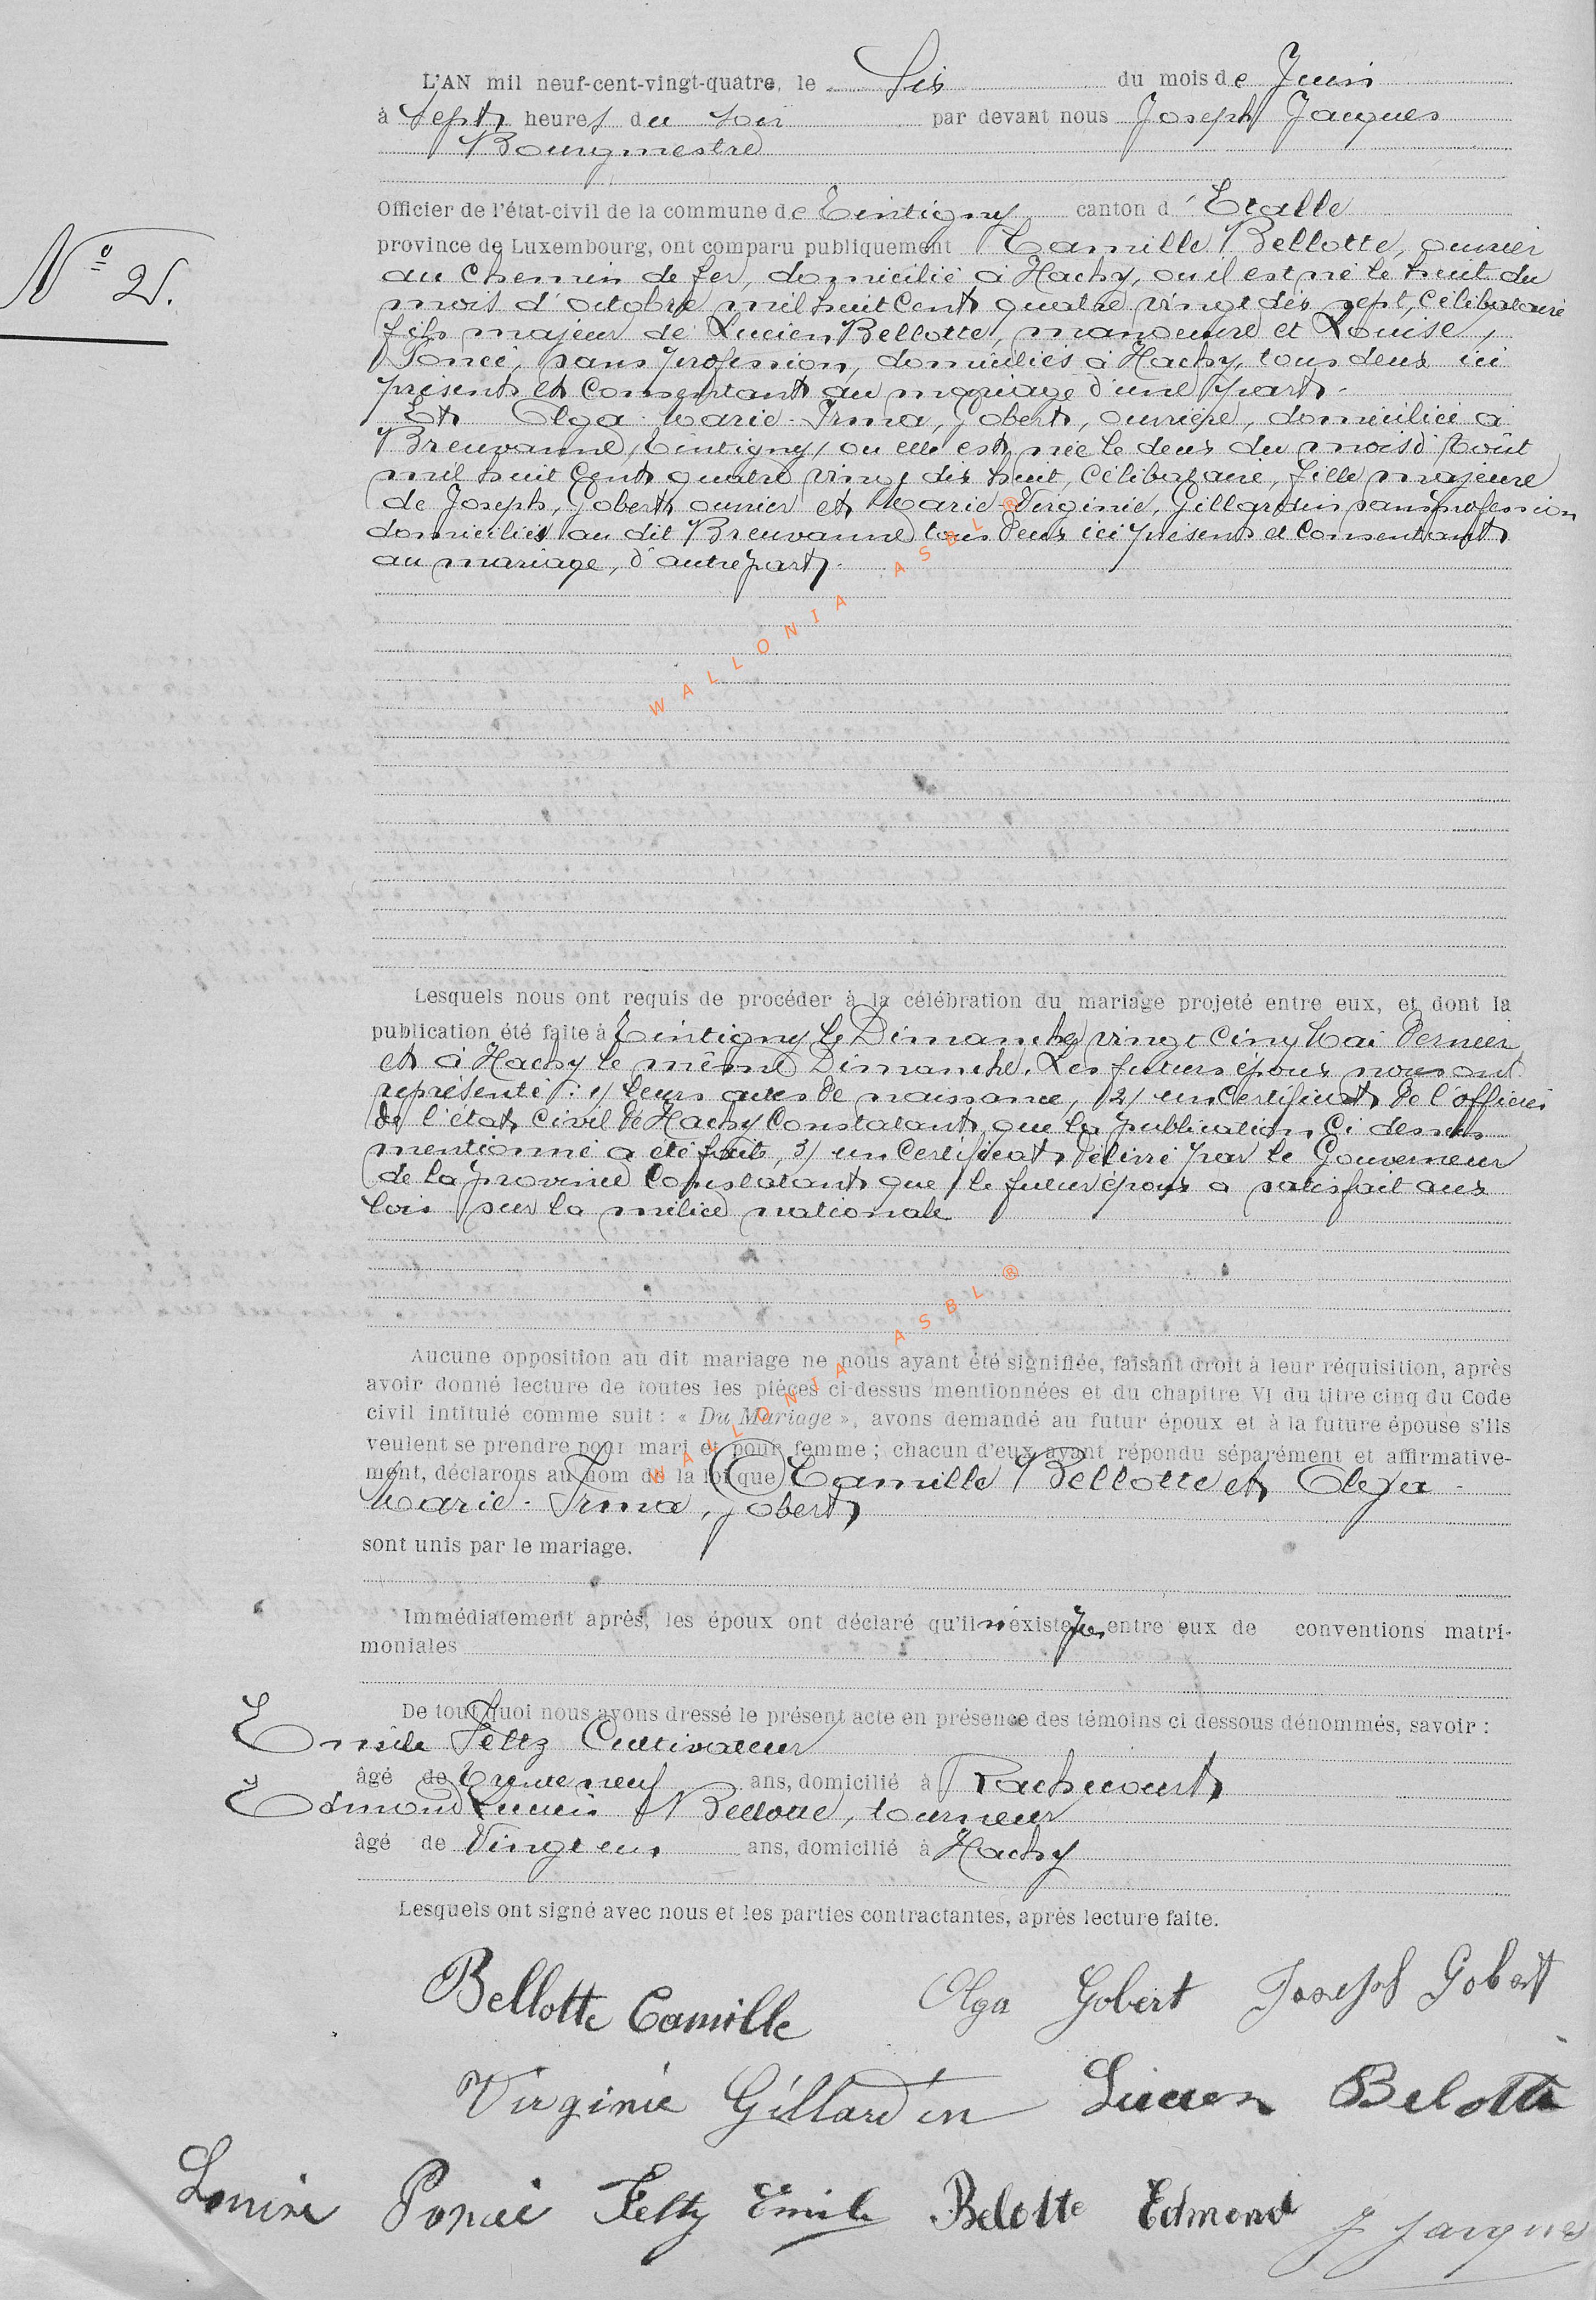 L'AN mil neuf-cent-vingt-quatre, le Six du mois de Juin
à sept heures du soir par devant nous Joseph Jacques
Bourgmestre
Officier de l'état-civil de la commune de Tintigny canton d'Etalle
N° 2.
province de Luxembourg, ont comparu publiquement Camille Bellotte, ouvrier
au chemin de fer, domicilié à Hachy, ou il est né le huit du
mois d'octobre mil huit cent quatre vingt dix sept, célibataire
fils majeur de Lucien Bellotte, manoeuvre et Louise,
Poncé, sans profession, domiciliés à Hachy, tous deux ici
présents et consentant au mariage d'une part.
Et Olga-Marie-Irma, Gobert, ouvrière, domiciliée à
Breuvanne, Tintigny, ou elle est née le deux du mois d'Août
mil huit cent quatre vingt dix huit, célibataire, fille majeure
de Joseph, Gobert ouvrier et Marie-Virginie, Gillardin sans profession
domiciliés au dit Breuvanne tous deux ici présents et consentant
au mariage, d'autre part.
WALLONIA ASBL ®
Lesquels nous ont requis de procéder à la célébration du mariage projeté entre eux, et dont la
publication été faite à Tintigny le Dimanche vingt cinq Mai dernier
et à Hachy le même Dimanche. Les futurs époux nous ont
représenté : 1/ leurs actes de naissance, 2/ un certificat de l'officier
de l'état civil de Hachy constatant que la publication ci dessus
mentionné a été faite, 3/ un certificat délivré par le Gouverneur
de la province constatant que le futur époux a satisfait aux
lois sur la milice nationale
WALLONIA ASBL ®
Aucune opposition au dit mariage ne nous ayant été signifiée, faisant droit à leur réquisition, après
avoir donné lecture de toutes les pièces ci-dessus mentionnées et du chapitre VI du titre cinq du Code
civil intitulé comme suit : « Du Mariage », avons demandé au futur époux et à la future épouse s'ils
veulent se prendre pour mari et pour femme ; chacun d'eux ayant répondu séparément et affirmative-
ment, déclarons au nom de la loi que Camille Bellotte et Olga-
Marie-Irma, Gobert
sont unis par le mariage.
Immédiatement après, les époux ont déclaré qu'il n'existe pas entre eux de conventions matri-
moniales
De tout quoi nous avons dressé le présent acte en présence des témoins ci dessous dénommés, savoir :
Emile Feltz Cultivateur
âgé de trente neuf ans, domicilié à Rachecourt
Edmond Lucien Bellotte, tourneur
âgé de Vingt un ans, domicilié à Hachy
Lesquels ont signé avec nous et les parties contractantes, après lecture faite.
Bellotte Camille Olga Gobert Joseph Gobert
Virginie Gillardin Lucien Belotte
Louise Poncé Feltz Emile Belotte Edmond J Jacques